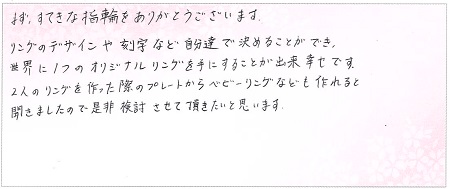 まず、すてきな指輪をありがとうございます。
リングのデザインや刻字など自分達で決めることができ、
世界に1つのオリジナルリングを手にすることが出来幸せです。
2人のリングを作った際のプレートからベビーリングなども作れると
聞きましたので是非検討させて頂きたいと思います。